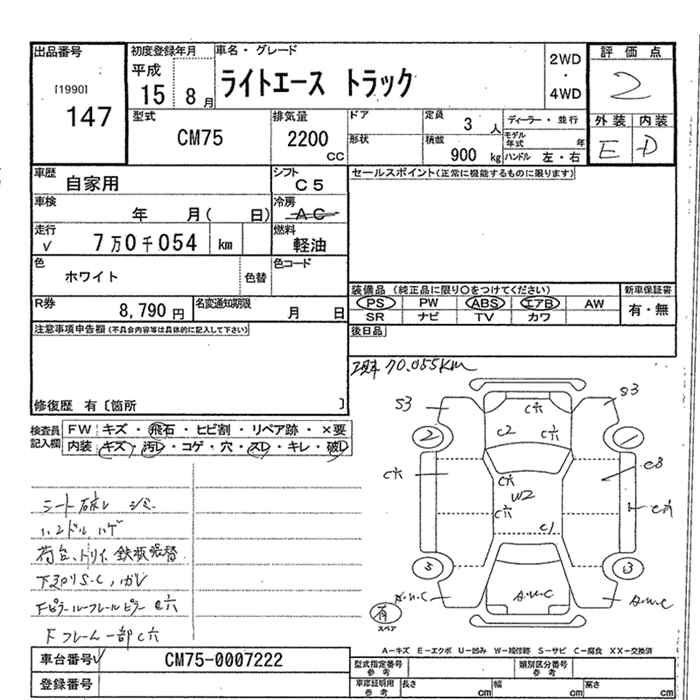 出品番号
[1990]
147
初度登録年月
平成
15 8月
車名・グレード
ライトエース トラック
2WD
・
4WD
評価点
2
外装 内装
E D
型式
CM75
排気量
2200
CC
ドア
形状
定員 3 人
積載
900 kg
ディーラー・並行
モデル年式 年
ハンドル 左・右
車歴
自家用
シフト
C5
車検
年 月( 日)
冷房
AC
走行
7万0千054 km
燃料
軽油
色
ホワイト
色替
色コード
R券
8,790円
名変通知期限
月 日
セールスポイント(正常に機能するものに限ります)
装備品 (純正品に限り〇をつけてください)
PS PW ABS エアB AW
SR ナビ TV カワ
新車保証書
有・無
後日品
注意事項申告欄(不具合内容等は具体的に記入して下さい)
修復歴 有〔箇所 〕
70.055KM
検査員記入欄
FW キズ・飛石・ヒビ割・リペア跡・×要
内装 キズ・汚レ・コゲ・穴・スレ・キレ・破レ
シート破レ シミ
ハンドル ハゲ
下廻りS・C
Fフレーム一部C穴
S3
S3
C穴
C2
C穴
2
C穴
C穴
W2
C穴
C1
C穴
3
3
A・W・C
A・W・C
A・W・C
有
スペア
A－キズ E－エクボ U－凹み W－補修跡 S－サビ C－腐食 XX－交換済
車台番号 CM75-0007222
登録番号
型式指定番号
参考
類別区分番号
参考
車庫証明用
参考
長さ cm
幅 cm
高さ cm